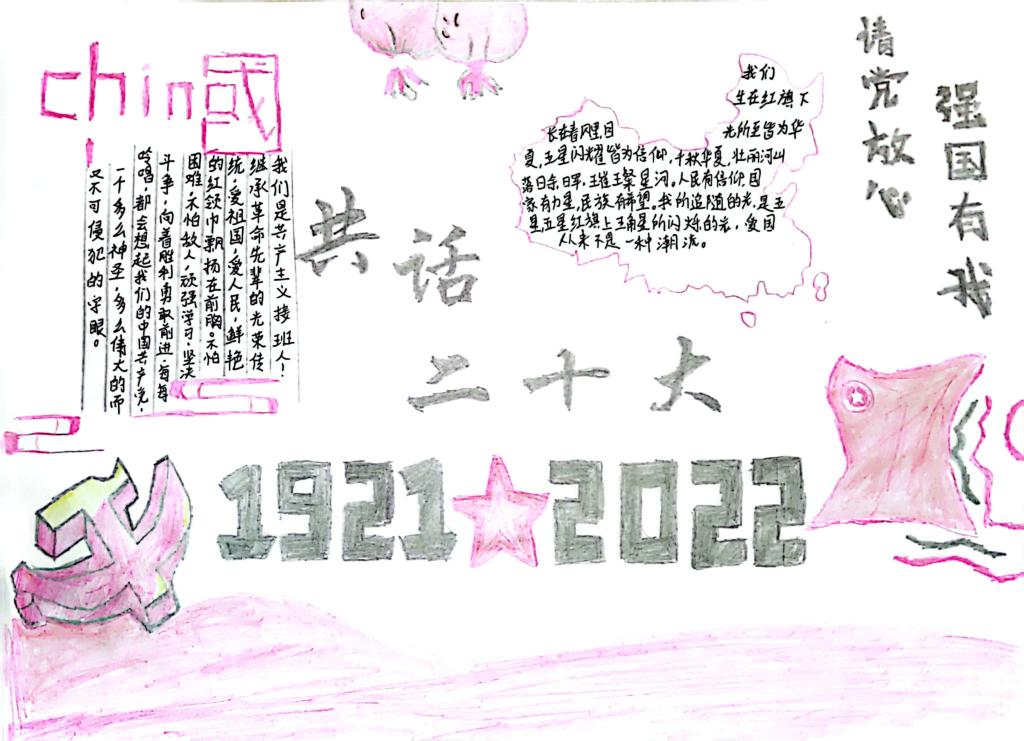 chin国
我们是共产主义接班人!
继承革命先辈的光荣传
统,爱祖国,爱人民,鲜艳
的红领巾飘扬在前胸。不怕
困难,不怕敌人,顽强学习,坚决
斗争,向着胜利勇敢前进,每每
吟唱,都会想起我们的中国共产党,
一个多么神圣,多么伟大的而
又不可侵犯的字眼。
共话
二十大
1921 2022
我们
生在红旗下
长在春风里,目
光所至皆为华
夏,五星闪耀皆为信仰,千秋华夏,壮丽河山
落日余晖,璀璨星河。人民有信仰,国
家有力量,民族有希望。我所追随的光,是五
星五星红旗上五角星所闪烁的光,爱国
从来不是一种潮流。
请党放心
强国有我